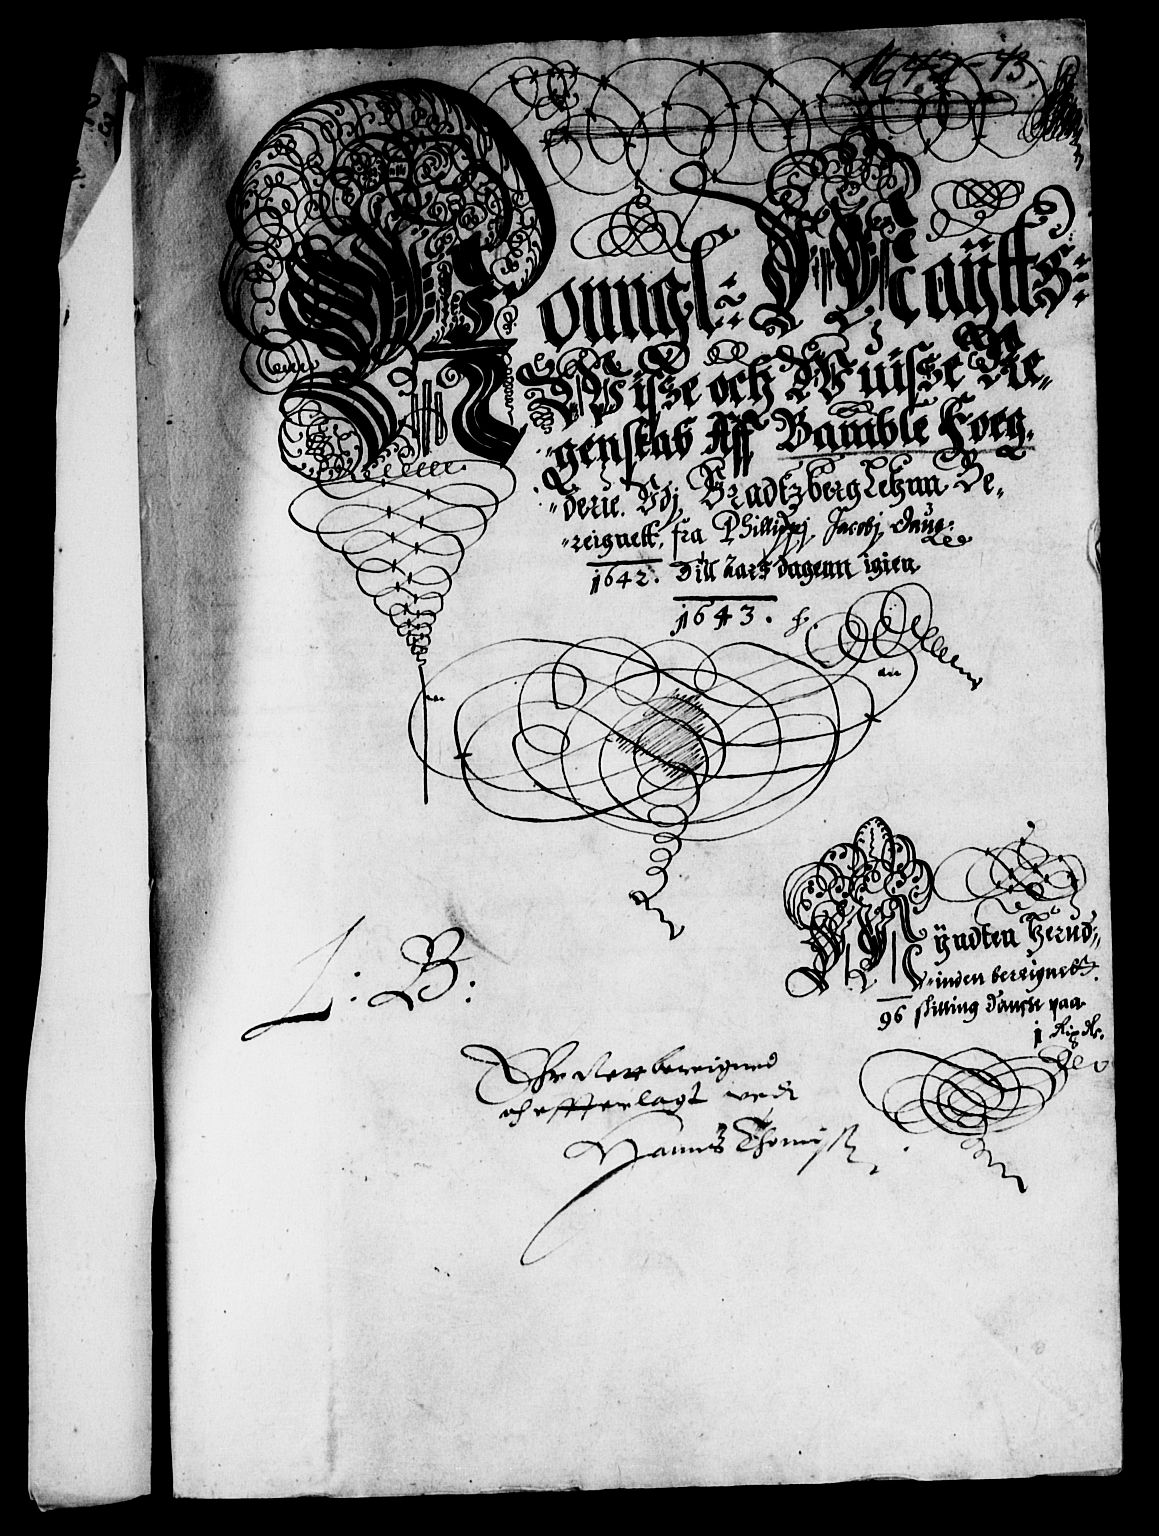 1642-43.
Konngl: Maÿtts:
Wisse och Wuisse Re,
genskab Aff Bamble Foeg,
derie. Vdj, Bradtzberg Lehnn Be,
reignett, fra Phillippj Jacobj daug:
1642. Till aars dagenn igien
1643.
Mÿndten herud,
inden bereignett
96 skilling dansk paa
1 Rix dlr.
L: B:
effterlagt vedt
Hanns Thomiss